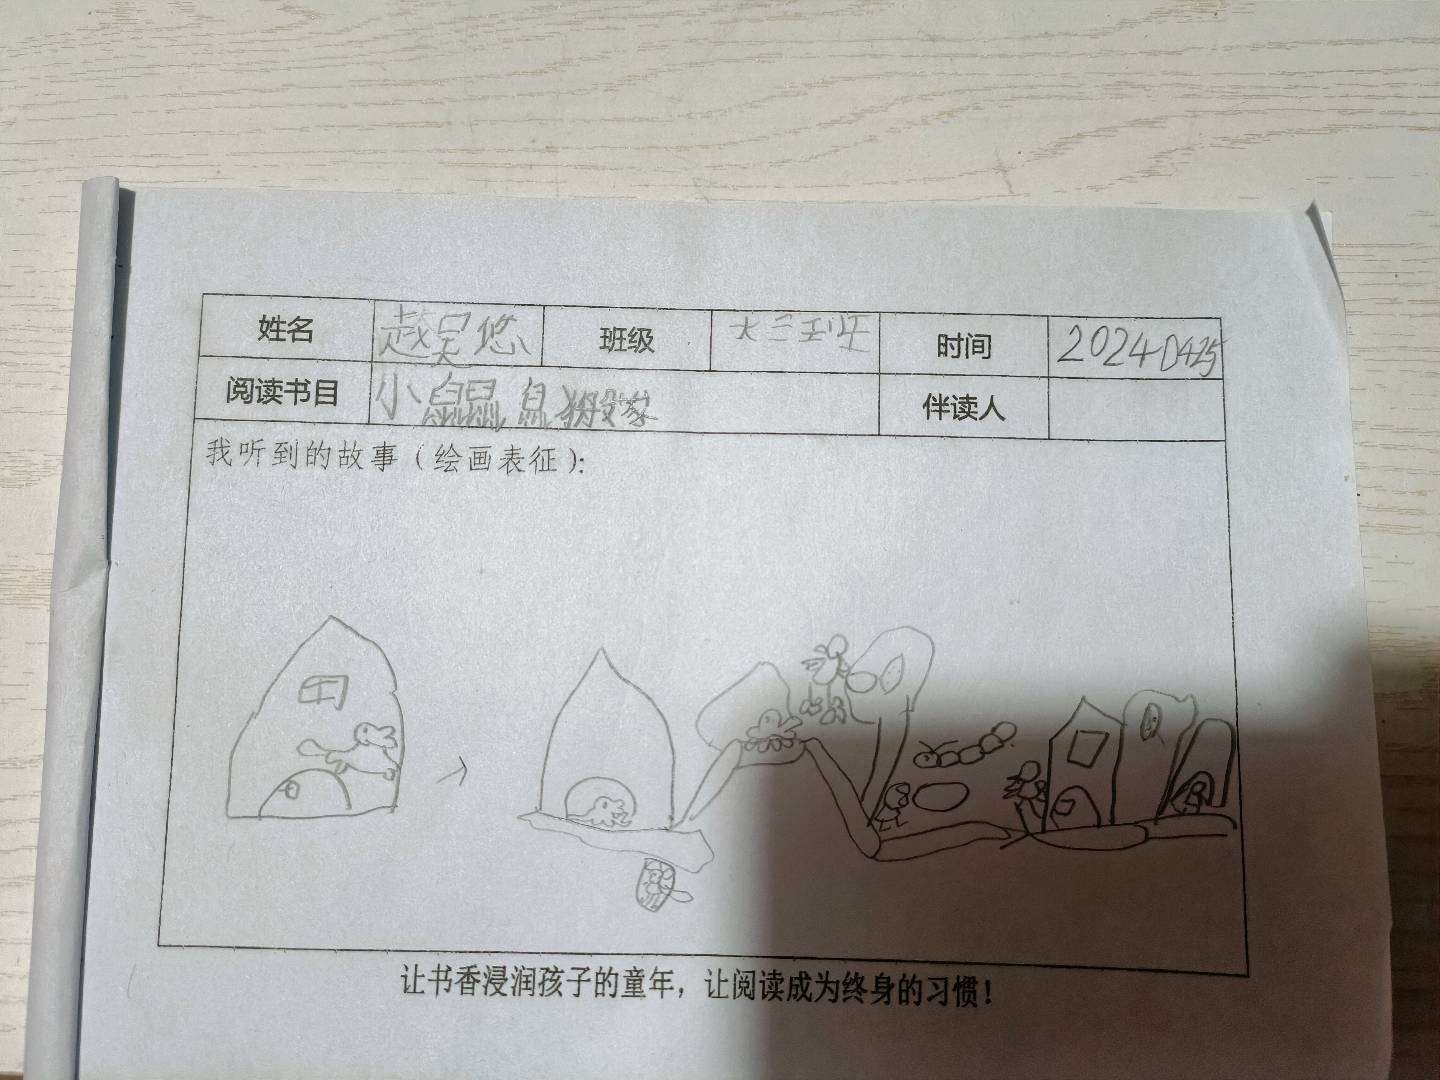 姓名 班级 大三班 时间 2024 0425
阅读书目 小鼹鼠搬家 伴读人
我听到的故事（绘画表征）：
让书香浸润孩子的童年，让阅读成为终身的习惯！